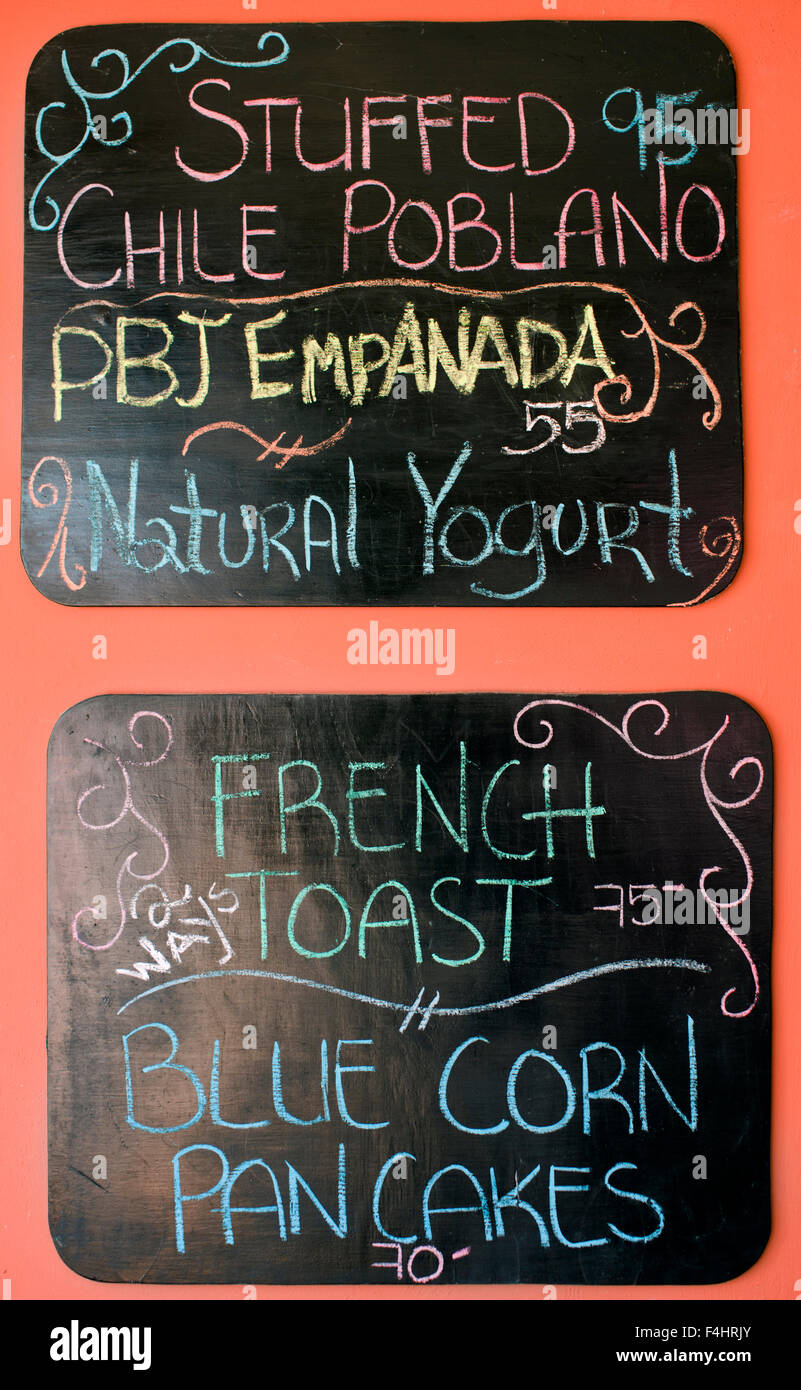 STUFFED 95-
CHILE POBLANO
PBJ EMPANADA
55
Natural Yogurt
FRENCH
2 WAYS TOAST 75-
BLUE CORN
PANCAKES
70-
alamy
Image ID: F4HRJY
www.alamy.com